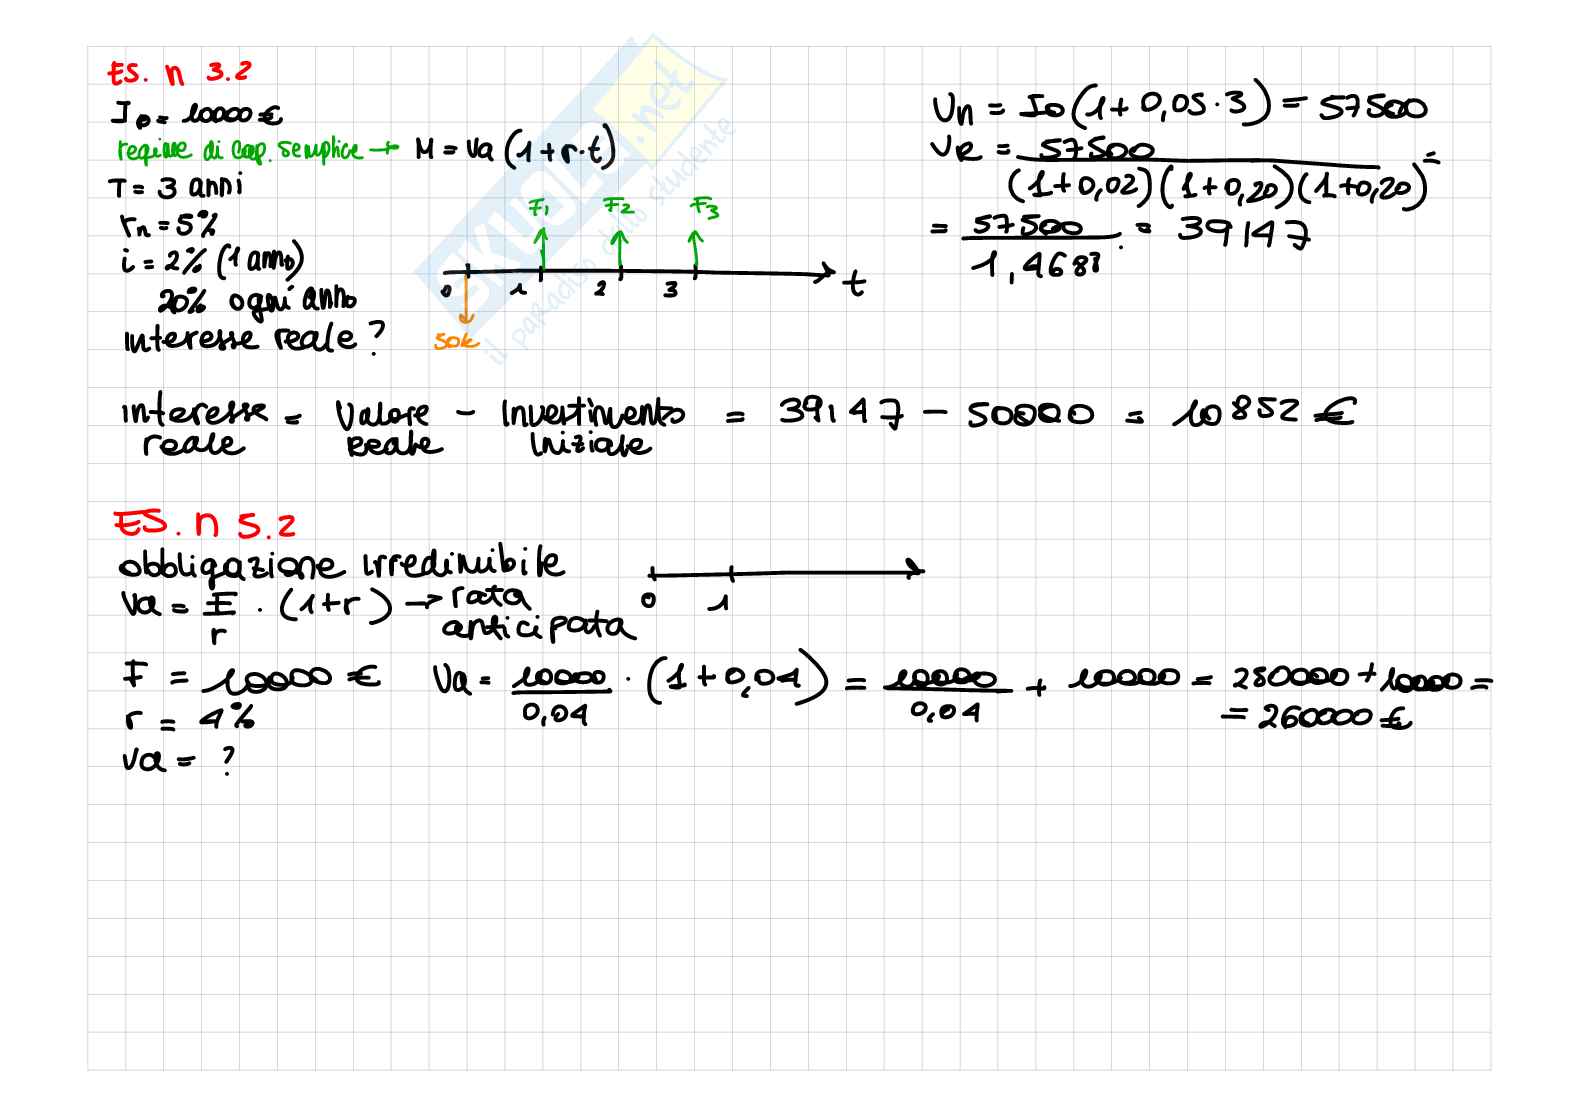 ES. n 3.2
I₀ = 10000 €
regime di cap. semplice → M = Va (1 + r·t)
T = 3 anni
rn = 5%
i = 2% (1 anno)
20% ogni anno
interesse reale ?
F₁ F₂ F₃
0 1 2 3 t
50k
Vn = I₀ (1 + 0,05 · 3) = 57500
VR = 57500 / (1+0,02)(1+0,20)(1+0,20) =
= 57500 / 1,4688 = 39147
interesse reale = Valore Reale - Investimento iniziale = 39147 - 50000 = 10852 €
ES. n 5.2
obbligazione irredimibile
Va = F/r · (1+r) → rata anticipata
0 1
F = 10000 € Va = 10000/0,04 · (1 + 0,04) = 10000/0,04 + 10000 = 250000 + 10000 =
r = 4% = 260000 €
Va = ?
SKUOLA.net
il paradiso dello studente